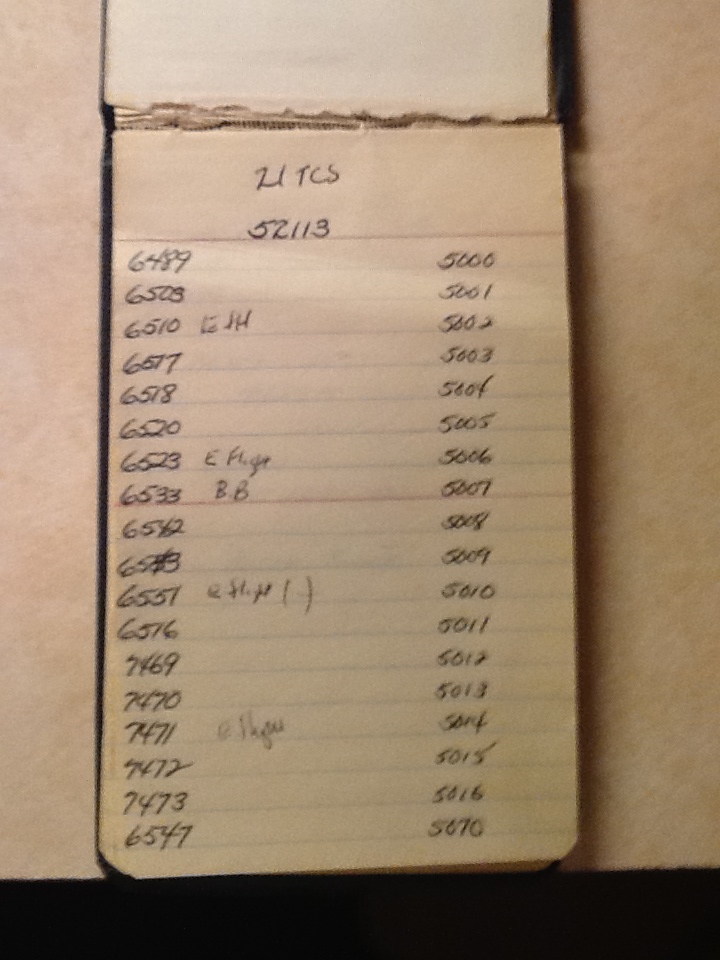 21 TCS
52113
6489 5000
6503 5001
6510 5002
6517 5003
6518 5004
6520 5005
6523 E Flight 5006
6533 B.B 5007
6542 5008
6543 5009
6551 E Flight (-) 5010
6576 5011
7469 5012
7470 5013
7471 E Flight 5014
7472 5015
7473 5016
6547 5070